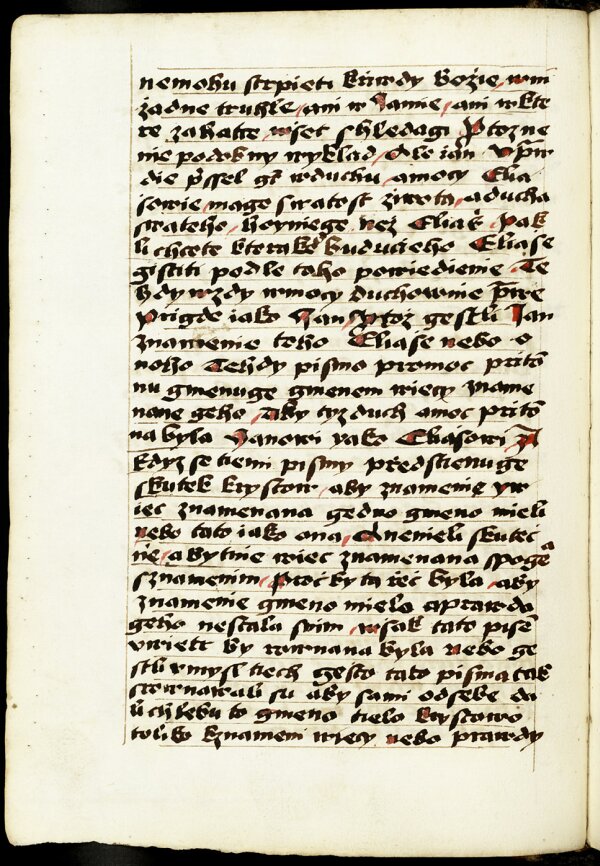 nemohu strpieti kriwdy Bozie, w ni
zadne truhle, ani w Jamie, ani w kte
re zahatie, wssec shledagi Ptoz ne
nie podobny wyklad, Ale ian
die pssel gt w duchu, a mocy Elia
sowie, mage swatost ziwota, a ducha
swateho, hoyniege, nez Elias, Pak
li chcete kterakz buduciého Eliasse
gistiti podle toho powiedienie, Te
hdy wzdy w mocy duchownie prwe
prigde iako Jan, Ptoz gestli Jan
znamenie toho Eliase nebo o
noho Tehdy pismo pro moc prito
nu gmenuge gmenem wiecy zname
nane geho, Aby tyz duch a moc prito
na byla Janowi yako Eliasowi
kdyz se tiemi pismy predstienuge
skutek krystow, aby znamenie yw
iec znamenana gedno gmeno mieli
nebo tato iako ona, A nemieli skutec
nie, a bytnie wiec znamenana spoge
s znamenim, Proc by ta rec byla, aby
znamenie gmeno mielo a prawda
geho nestala s nim, wssak tato pise
wniettr by rownana byla nebo ge
stli vmysl tiech gesto tato pisma tak
srownawali su aby sami od sebe da
li chlebu to gmeno tielo krystowo
toliko k znameni wiecy nebo prawdy